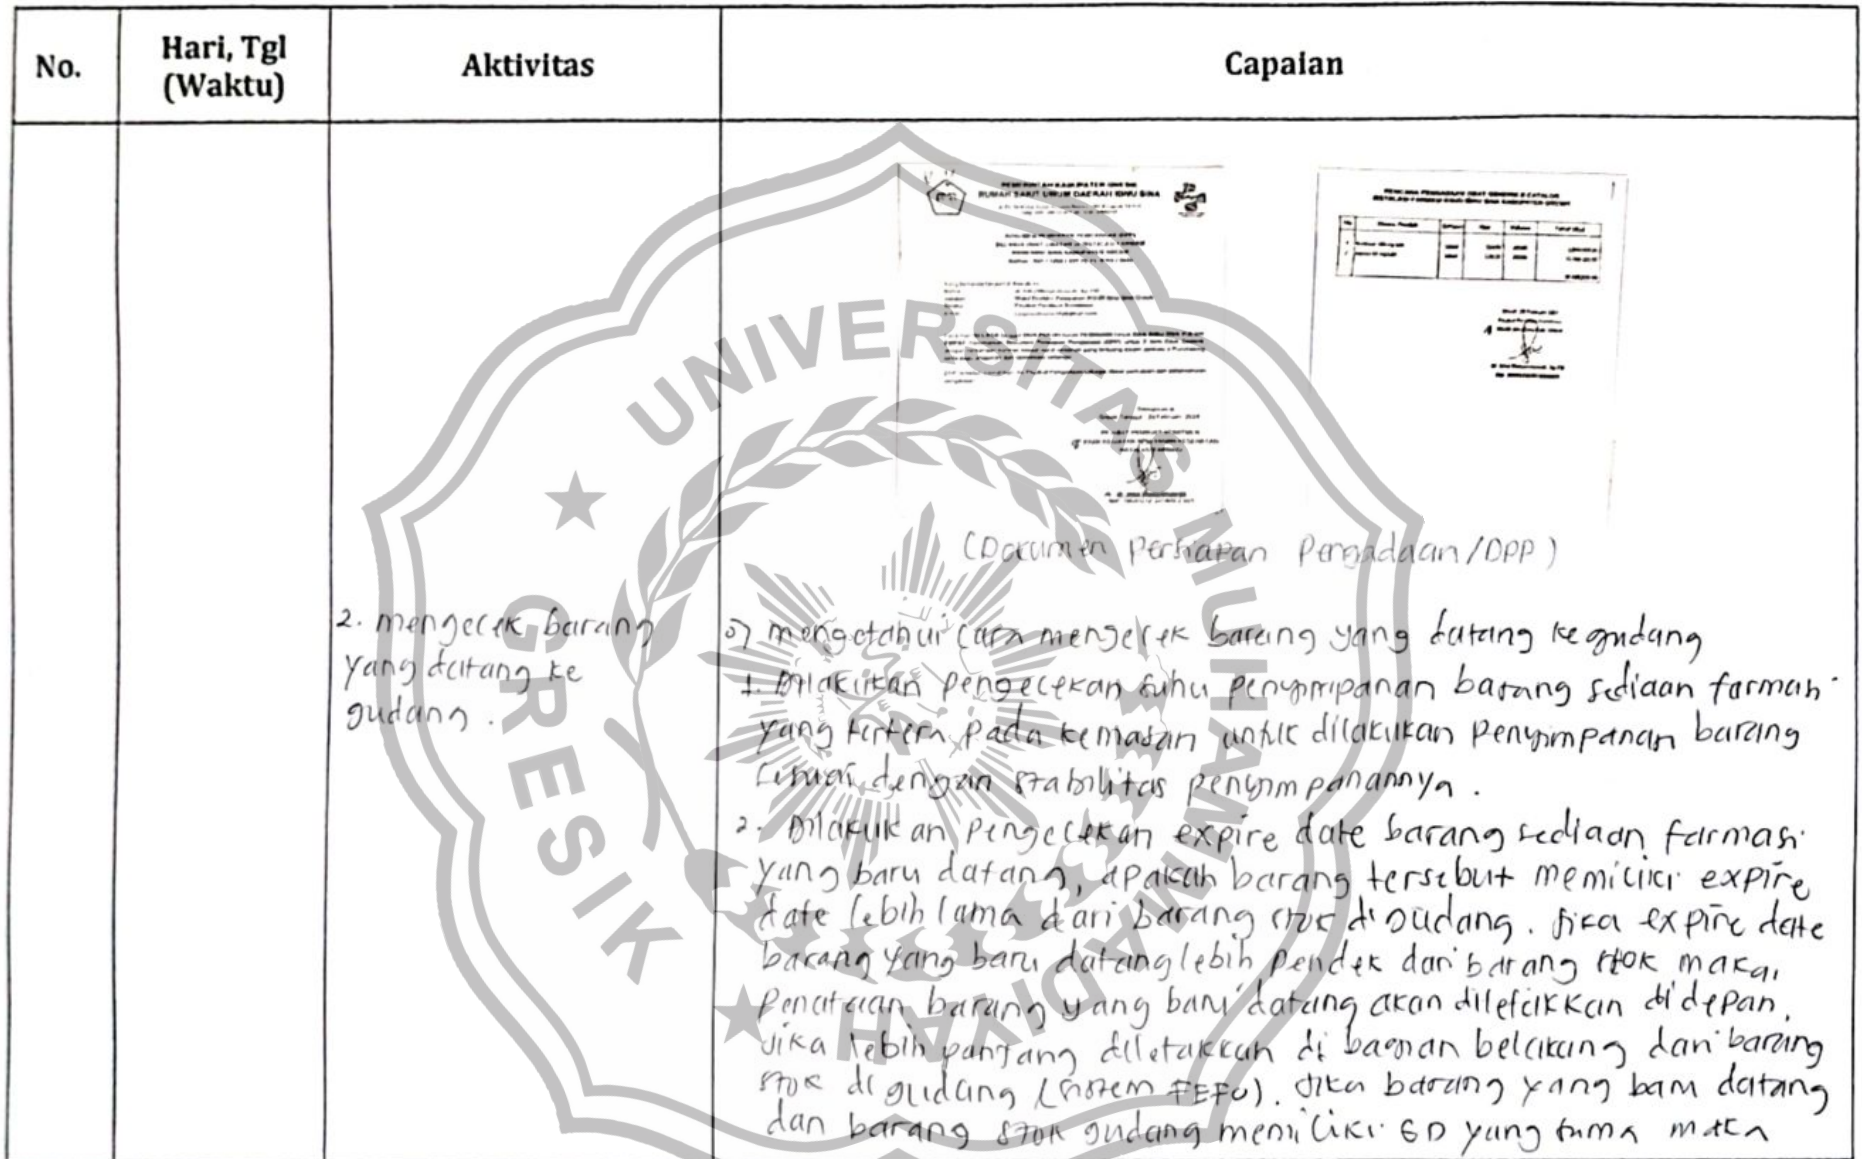 No.
Hari, Tgl
(Waktu)
Aktivitas
Capaian
RUMAH SAKIT UMUM DAERAH IBNU SINA
(Dokumen Persiapan Pengadaan/DPP)
2. mengecek barang
yang datang ke
gudang.
mengetahui cara mengecek barang yang datang ke gudang
1. Dilakukan pengecekan suhu penyimpanan barang sediaan farmasi
yang tertera pada kemasan untuk dilakukan penyimpanan barang
sesuai dengan stabilitas penyimpanannya.
2. Dilakukan pengecekan expire date barang sediaan farmasi
yang baru datang, apakah barang tersebut memiliki expire
date lebih lama dari barang stok di gudang. Jika expire date
barang yang baru datang lebih pendek dari barang stok maka
penataan barang yang baru datang akan diletakkan di depan,
Jika lebih panjang diletakkan di bagian belakang dari barang
stok di gudang (sistem FEFO). Jika barang yang baru datang
dan barang stok gudang memiliki ED yang sama maka
UNIVERSITAS MUHAMMADIYAH
GRESIK